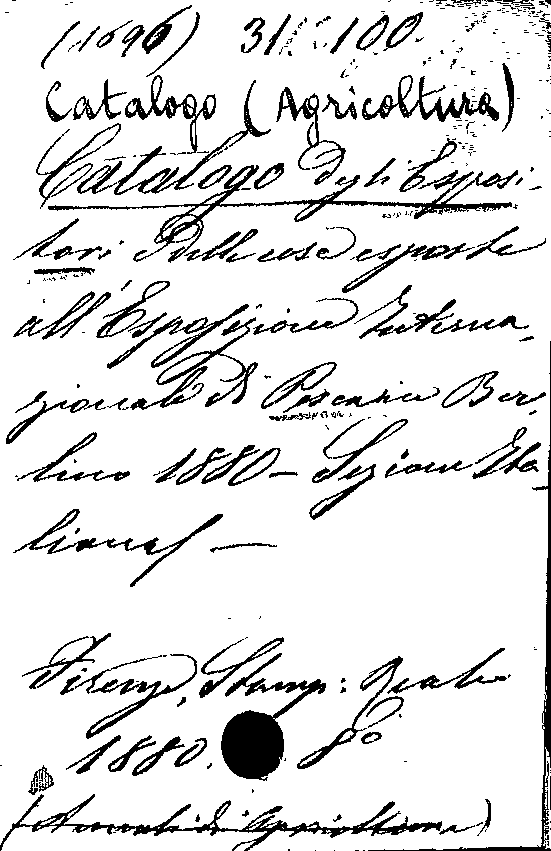 (1696) 31 100.
Catalogo (Agricoltura)
Catalogo degli Esposi-
tori e delle cose esposte
all'Esposizione Interna-
zionale di Pescaria Ber-
lino 1880 – Sezione Ita-
liana –
Firenze, Stamp: Reale
1880. 8°
(Annali di Agricoltura)